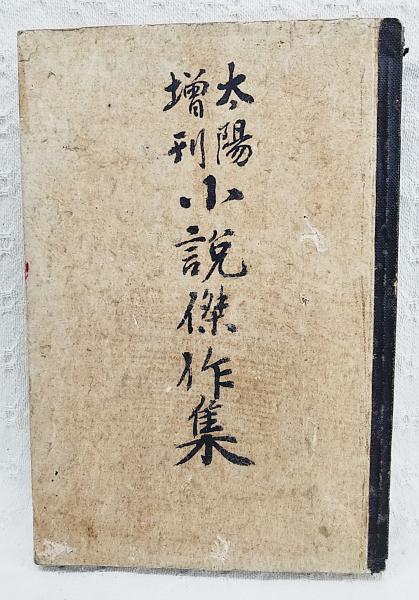 太陽
增刊
小説傑作集